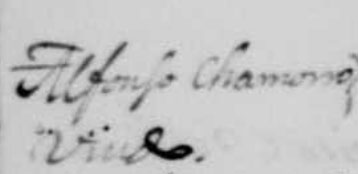 Alfonso Chamorro
Viudo.